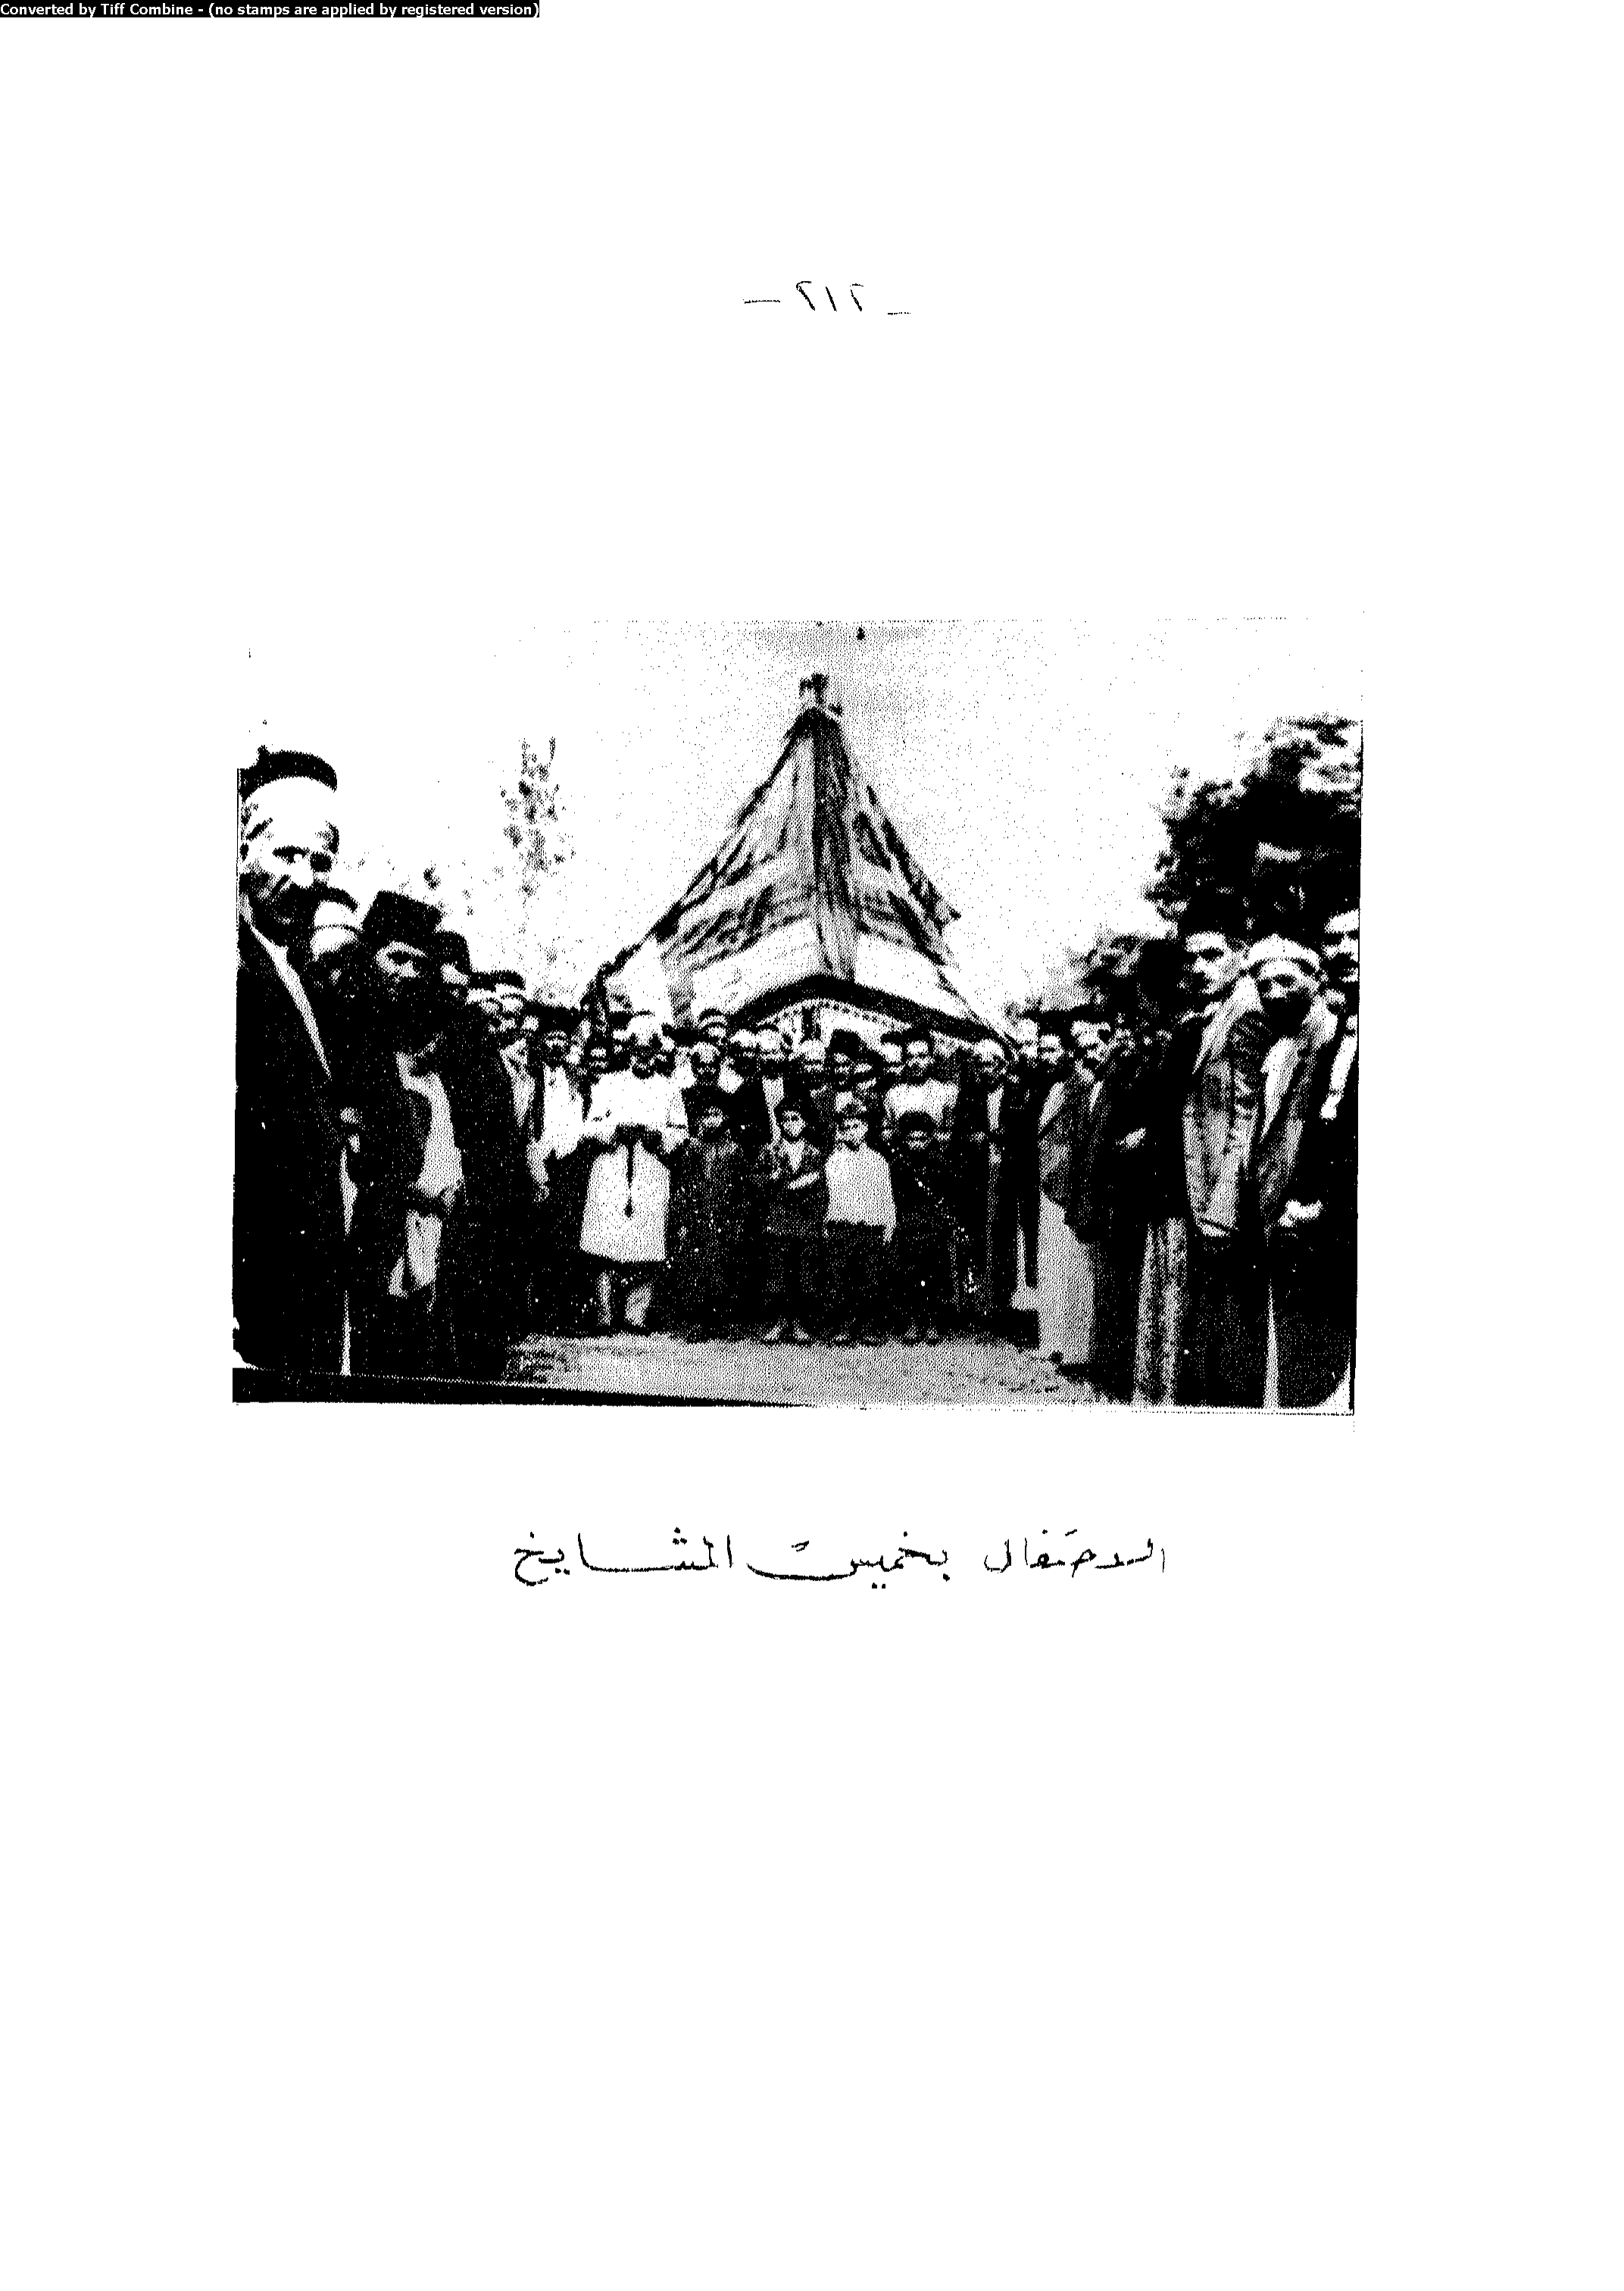 Converted by Tiff Combine - (no stamps are applied by registered version)
— ٢١٢ —
الاحتفال بخميس المشايخ